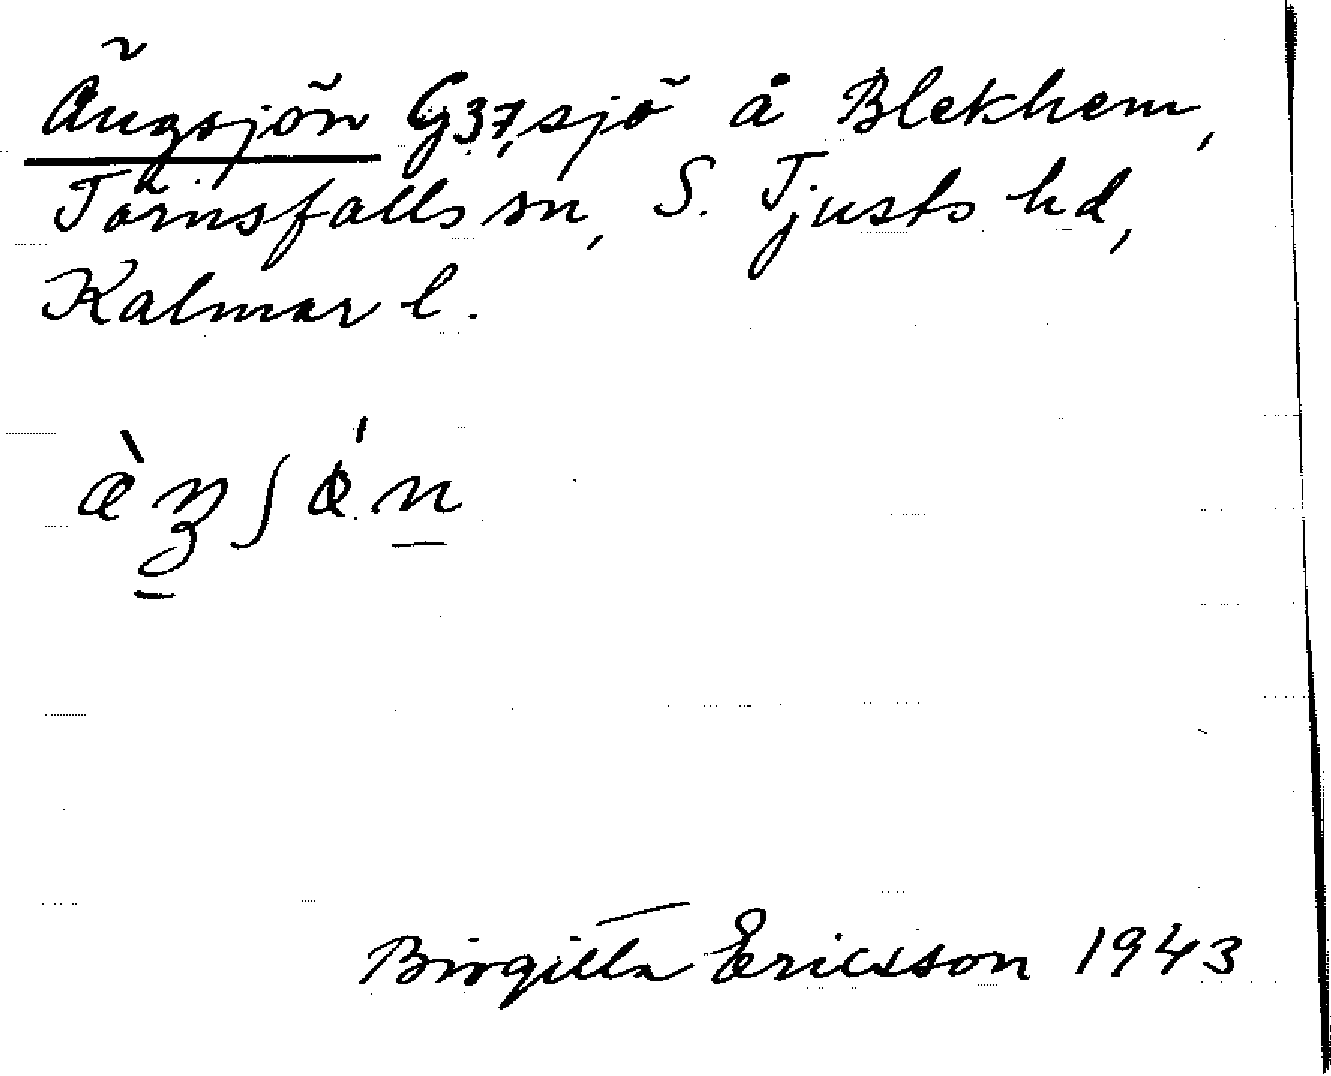 Ängsjön G37, sjö å Blekhem,
Törnsfalls sn, S. Tjusts hd,
Kalmar l.
Birgitta Ericsson 1943